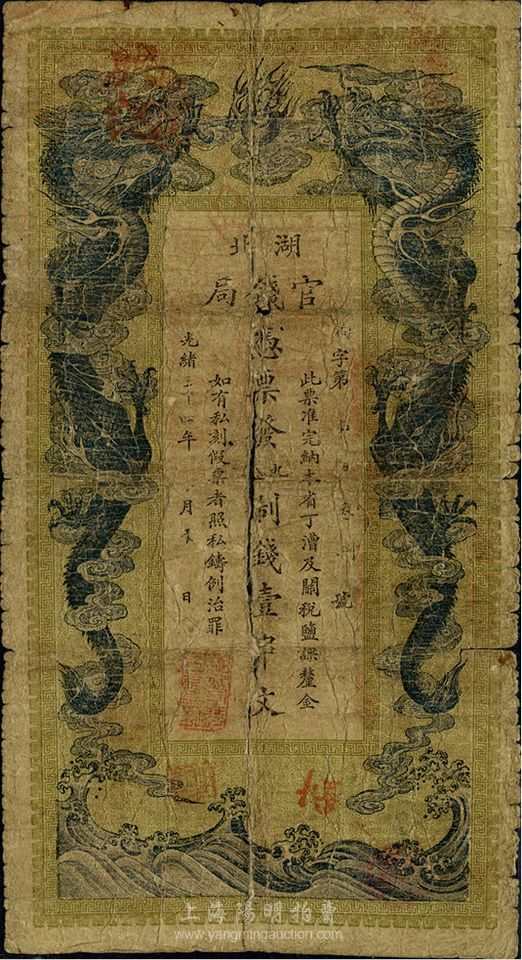 湖北
官錢局
字第 號
此票准完納本省丁漕及關稅鹽課釐金
憑票發九制錢壹串文
如有私刻假票者照私鑄例治罪
光緒三十四年 月 日
上海陽明拍賣
www.yangmingauction.com